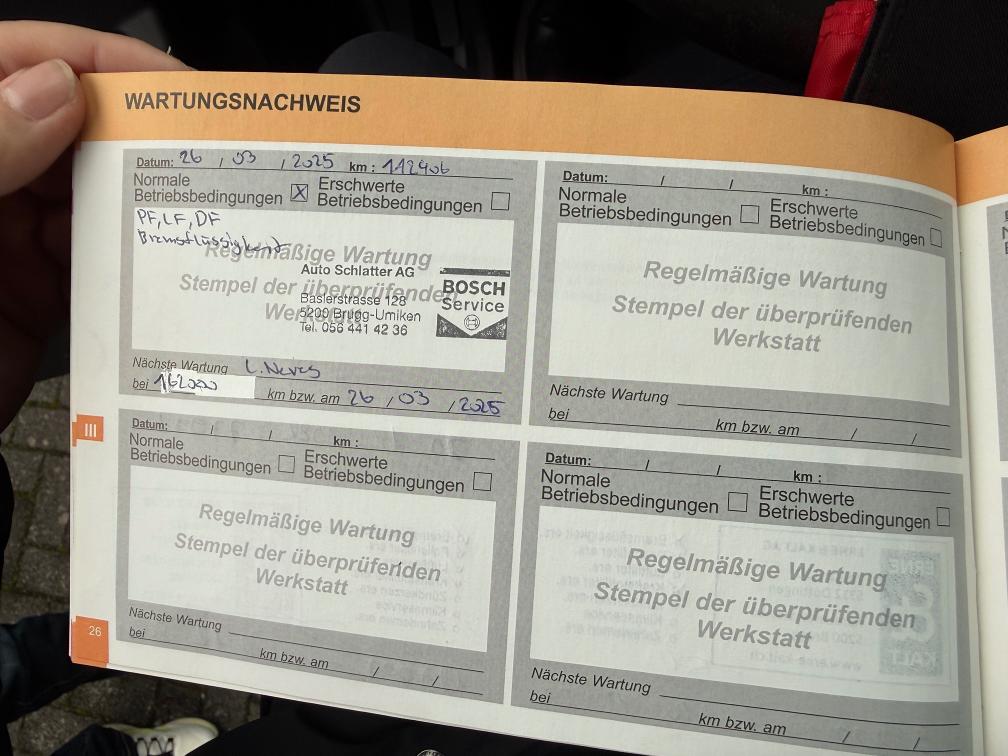 WARTUNGSNACHWEIS
Datum: 26 / 03 / 2025 km : 112906
Normale Betriebsbedingungen X Erschwerte Betriebsbedingungen
PF, LF, DF
Bremsflüssigkeit
Regelmäßige Wartung
Stempel der überprüfenden
Werkstatt
Auto Schlatter AG
Baslerstrasse 128
5200 Brugg-Umiken
Tel. 056 441 42 36
BOSCH
Service
Nächste Wartung L. Neves
bei 162000 km bzw. am 26 / 03 / 2025
Datum: / / km :
Normale Betriebsbedingungen Erschwerte Betriebsbedingungen
Regelmäßige Wartung
Stempel der überprüfenden
Werkstatt
Nächste Wartung
bei km bzw. am / /
III
Datum: / / km :
Normale Betriebsbedingungen Erschwerte Betriebsbedingungen
Regelmäßige Wartung
Stempel der überprüfenden
Werkstatt
Nächste Wartung
bei km bzw. am / /
Datum: / / km :
Normale Betriebsbedingungen Erschwerte Betriebsbedingungen
Regelmäßige Wartung
Stempel der überprüfenden
Werkstatt
Nächste Wartung
bei km bzw. am / /
26